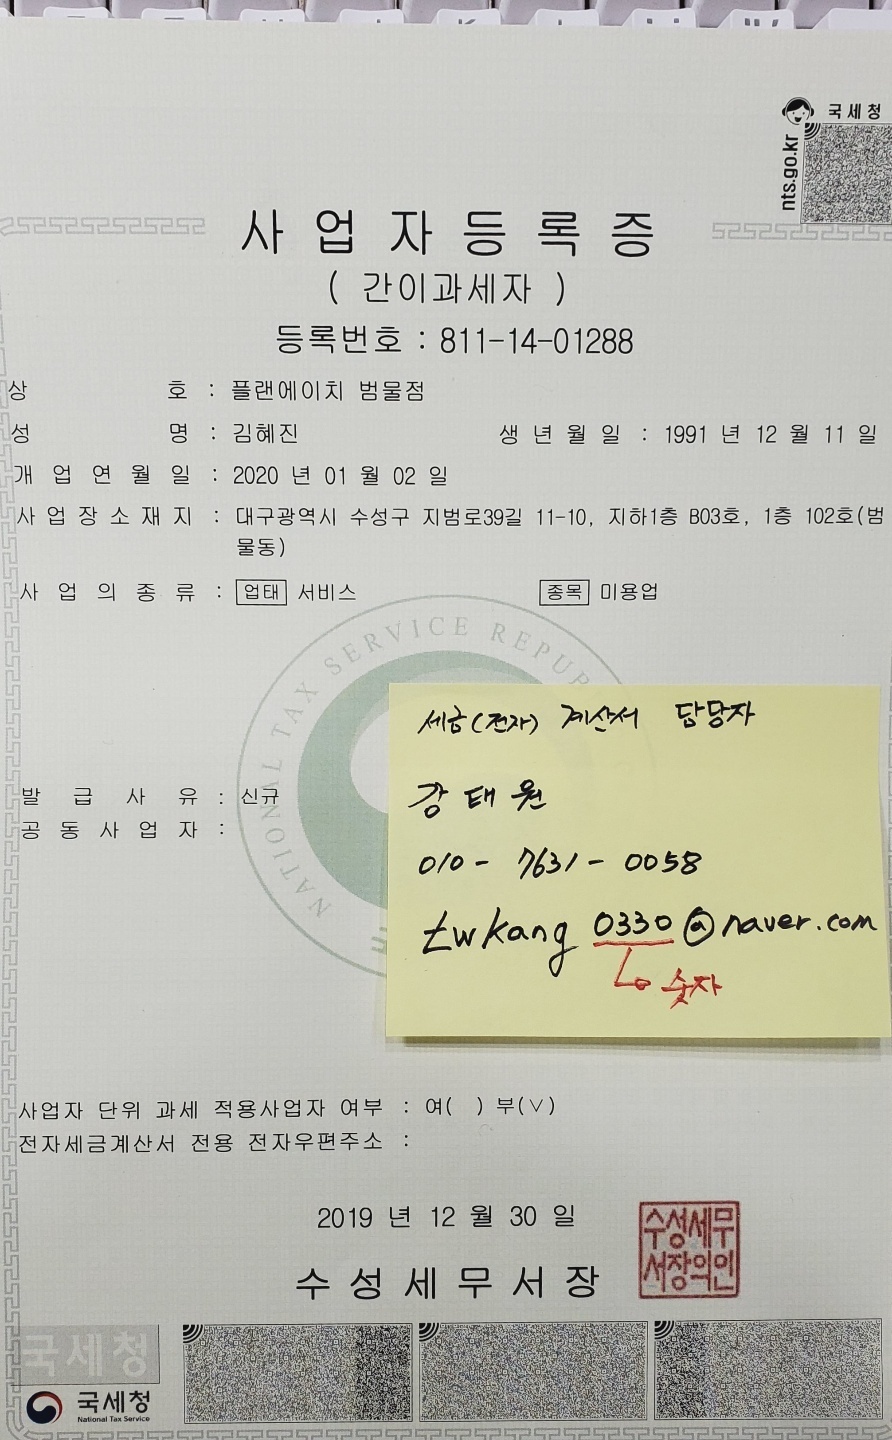 국세청
nts.go.kr
사업자등록증
( 간이과세자 )
등록번호 : 811-14-01288
상 호 : 플랜에이치 범물점
성 명 : 김혜진 생년월일 : 1991 년 12 월 11 일
개업연월일 : 2020 년 01 월 02 일
사업장소재지 : 대구광역시 수성구 지범로39길 11-10, 지하1층 B03호, 1층 102호(범
물동)
사업의종류 : 업태 서비스 종목 미용업
NATIONAL TAX SERVICE REPUB
세금(전자) 계산서 담당자
강태원
010 - 7631 - 0058
twkang 0330@naver.com
숫자
발급사유 : 신규
공동사업자 :
사업자 단위 과세 적용사업자 여부 : 여( ) 부(∨)
전자세금계산서 전용 전자우편주소 :
2019 년 12 월 30 일
수성세무서장
수성세무
서장의인
국세청
국세청
National Tax Service